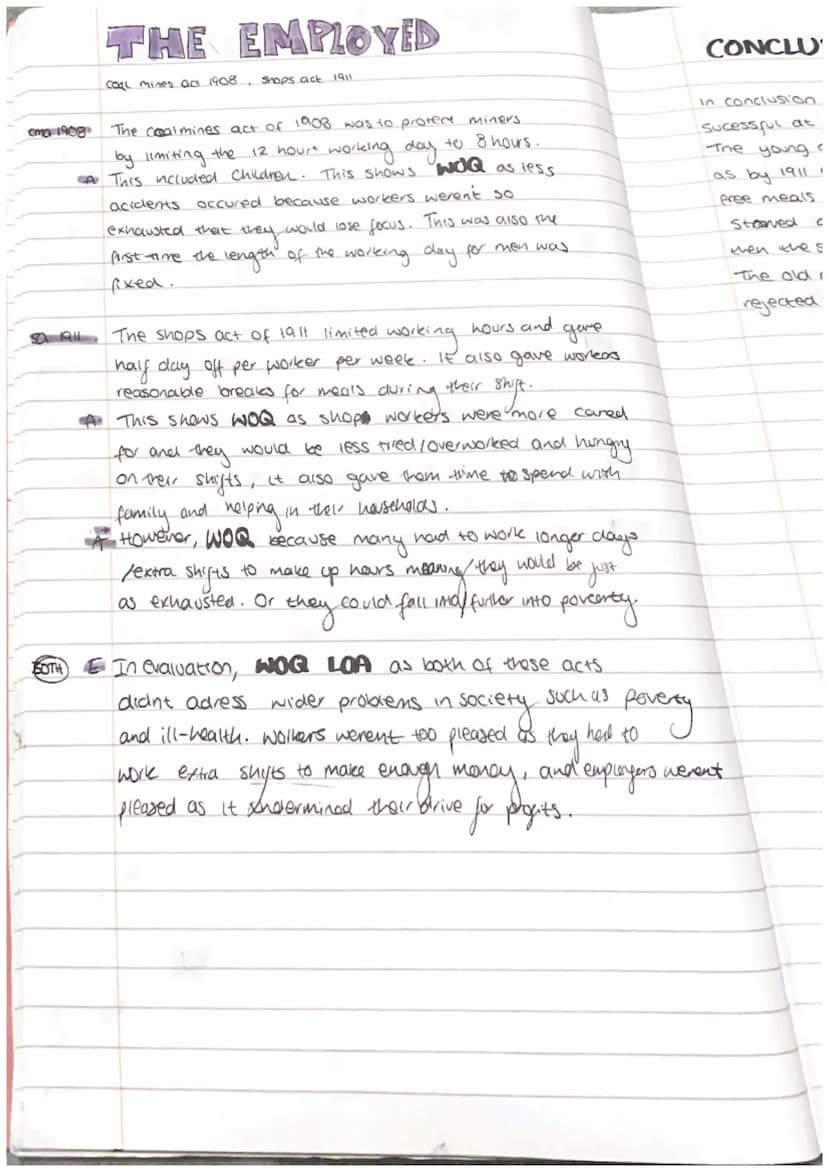 THE EMPLOYED
coal mines act 1908, shops act 1911
cma 1908 The coalmines act of 1908 was to protect miners
by limiting the 12 hour working day to 8 hours.
A This included children. This shows WOQ as less
acidents occured because workers werent so
exhausted that they would lose focus. This was also the
first time the length of the working day for men was
fixed.
SA 1911 The shops act of 1911 limited working hours and gave
half day off per worker per week. It also gave workers
reasonable breaks for meals during their shift.
A This shows WOQ as shop workers were more cared
for and they would be less tired/overworked and hungry
on their shifts, it also gave them time to spend with
family and helping in their households.
A+ However, WOQ because many had to work longer days
/extra shifts to make up hours meaning they would be just
as exhausted. Or they could fall into/further into poverty.
BOTH E In evaluation, WOQ LOA as both of these acts
didnt adress wider problems in society such as poverty
and ill-health. Workers werent too pleased as they had to
work extra shifts to make enough money, and employers werent
pleased as it undermined their drive for profits.
CONCLU
in conclusion
sucessful at
The young
as by 1911
free meals
starved
when the s
The old
rejected